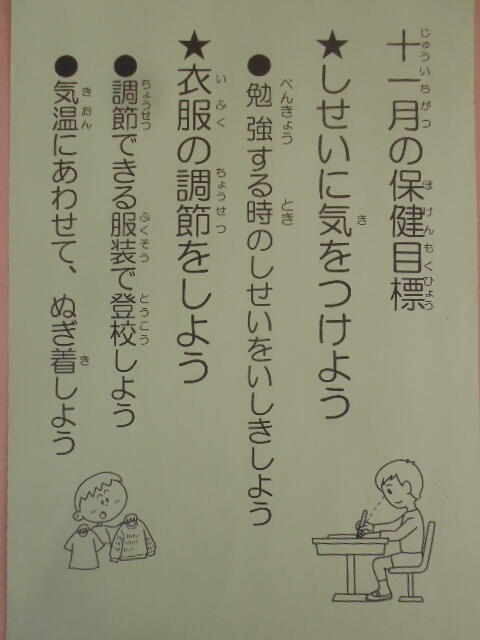 十一月の保健目標
★しせいに気をつけよう
●勉強する時のしせいをいしきしよう
★衣服の調節をしよう
●調節できる服装で登校しよう
●気温にあわせて、ぬぎ着しよう